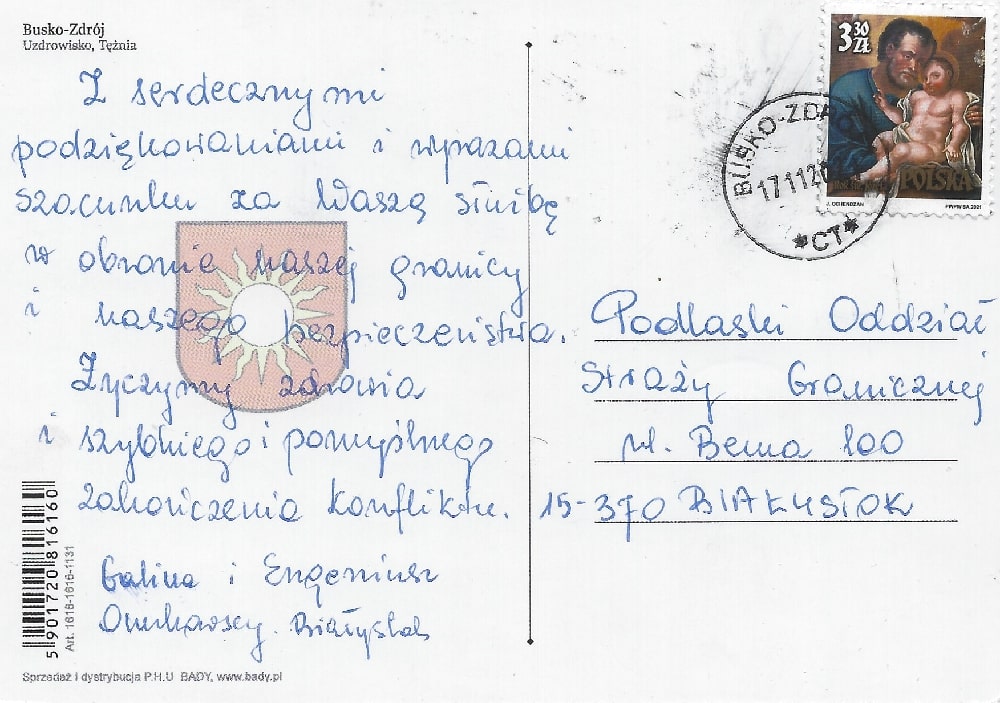 Busko-Zdrój
Uzdrowisko, Tężnia
Z serdecznymi
podziękowaniami i wyrazami
szacunku za Waszą służbę
w obronie naszej granicy
i naszego bezpieczeństwa.
Życzymy zdrowia
i szybkiego i pomyślnego
zakończenia konfliktu.
Galina i Eugeniusz
Białystok
5901720816160
Art. 1616-1616-1131
Sprzedaż i dystrybucja P.H.U BADY, www.bady.pl
3 30 ZŁ
POLSKA
BUSKO-ZDR
171120
*CT*
Podlaski Oddział
Straży Granicznej
ul. Bema 100
15-370 BIAŁYSTOK